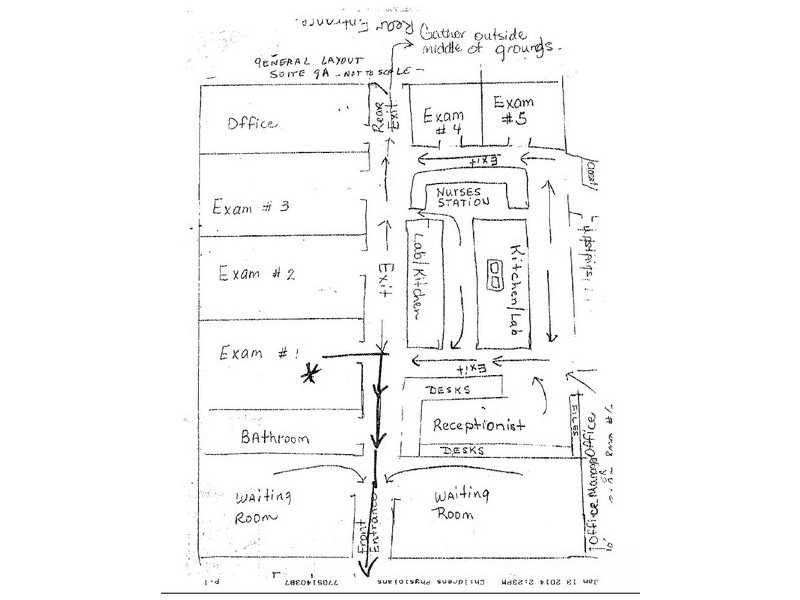 Rear Entrance.
Gather outside
middle of grounds.
GENERAL LAYOUT
SUITE 9A - NOT TO SCALE -
Office
Rear
Exit
Exam
#4
Exam
#5
Exit
Exam #3
NURSES
STATION
Exam #2
Exit
Lab/Kitchen
Kitchen/Lab
Exam #1
Exit
DESKS
Receptionist
FILES
BAthroom
DESKS
Office Manager Office
OR
WAiting
Room
Front
Entrance
WAiting
Room
Jan 13 2014 2:23PM Childrens Physicians 7705140387 p.1